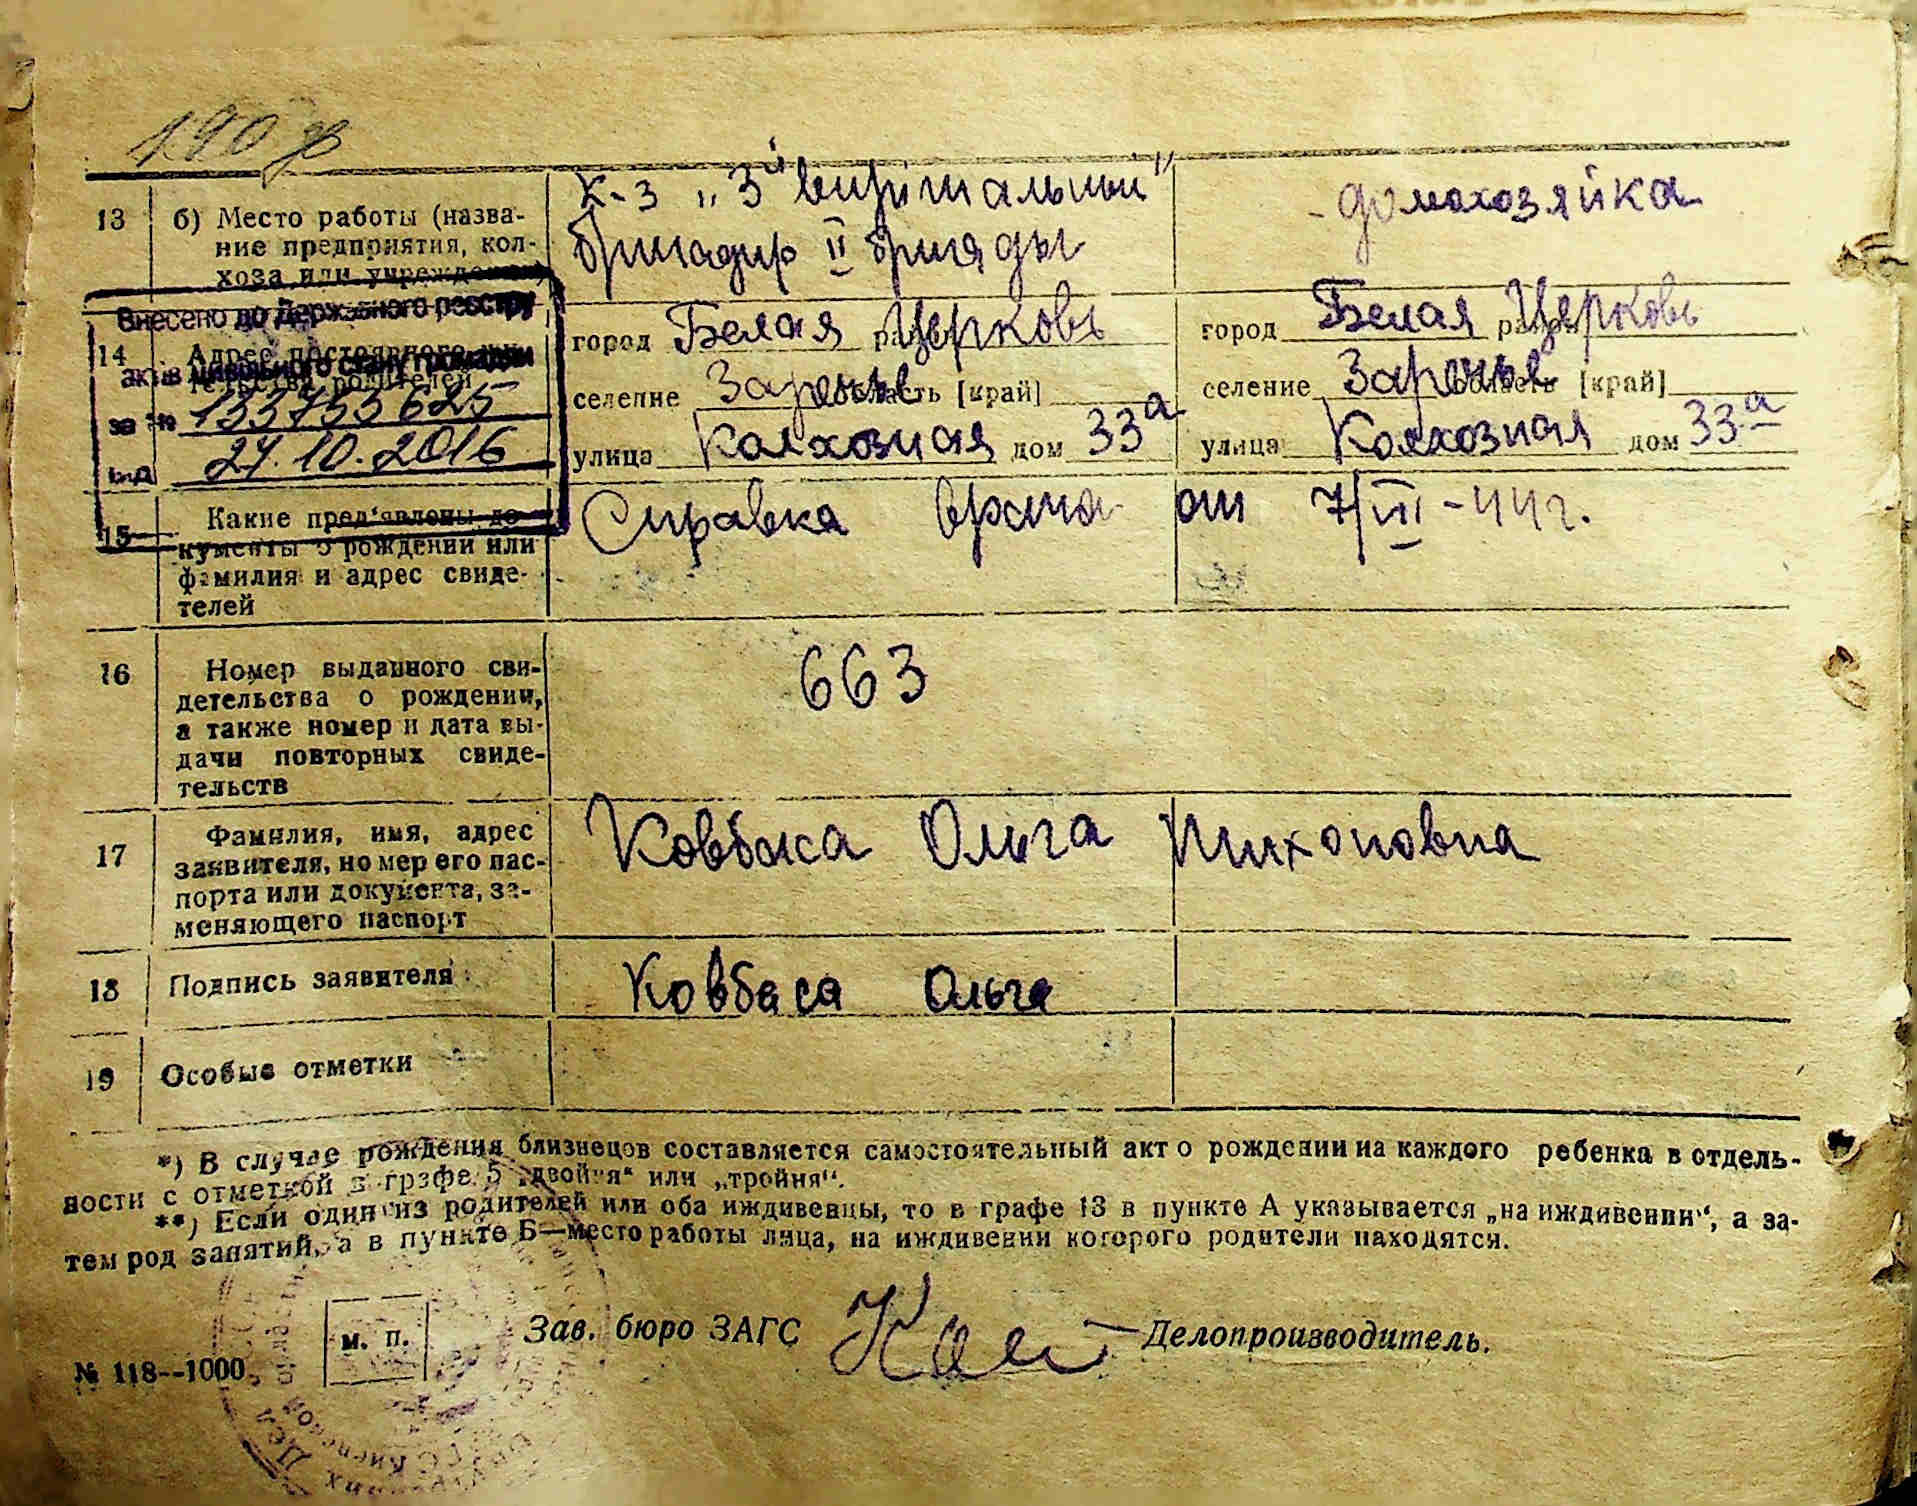 190
К-з „3й вирішальный"
- домохозяйка
13 б) Место работы (назва-
ние предприятия, кол-
хоза или учреждения)
бригадир II бригады
Внесено до Державного реєстру
актів цивільного стану громадян
за № 133753625
від 27.10.2016
14 Адрес постоянного жи-
тельства родителей
город Белая Церковь район
селение Заречье область [край]
улица Колхозная дом 33а
город Белая Церковь район
селение Заречье область [край]
улица Колхозная дом 33а
15 Какие пред'явлены до-
кументы о рождении или
фамилия и адрес свиде-
телей
Справка врача от 7/III-44г.
16 Номер выданного сви-
детельства о рождении,
а также номер и дата вы-
дачи повторных свиде-
тельств
663
17 Фамилия, имя, адрес
заявителя, номер его пас-
порта или документа, за-
меняющего паспорт
Ковбаса Ольга Тихоновна
18 Подпись заявителя
Ковбаса Ольга
19 Особые отметки
*) В случае рождения близнецов составляется самостоятельный акт о рождении на каждого ребенка в отдель-
ности с отметкой в графе 5 „двойня" или „тройня".
**) Если один из родителей или оба иждивенцы, то в графе 13 в пункте А указывается „на иждивении", а за-
тем род занятий, а в пункте Б—место работы лица, на иждивении которого родители находятся.
м. п.
Зав. бюро ЗАГС
Делопроизводитель.
№ 118--1000